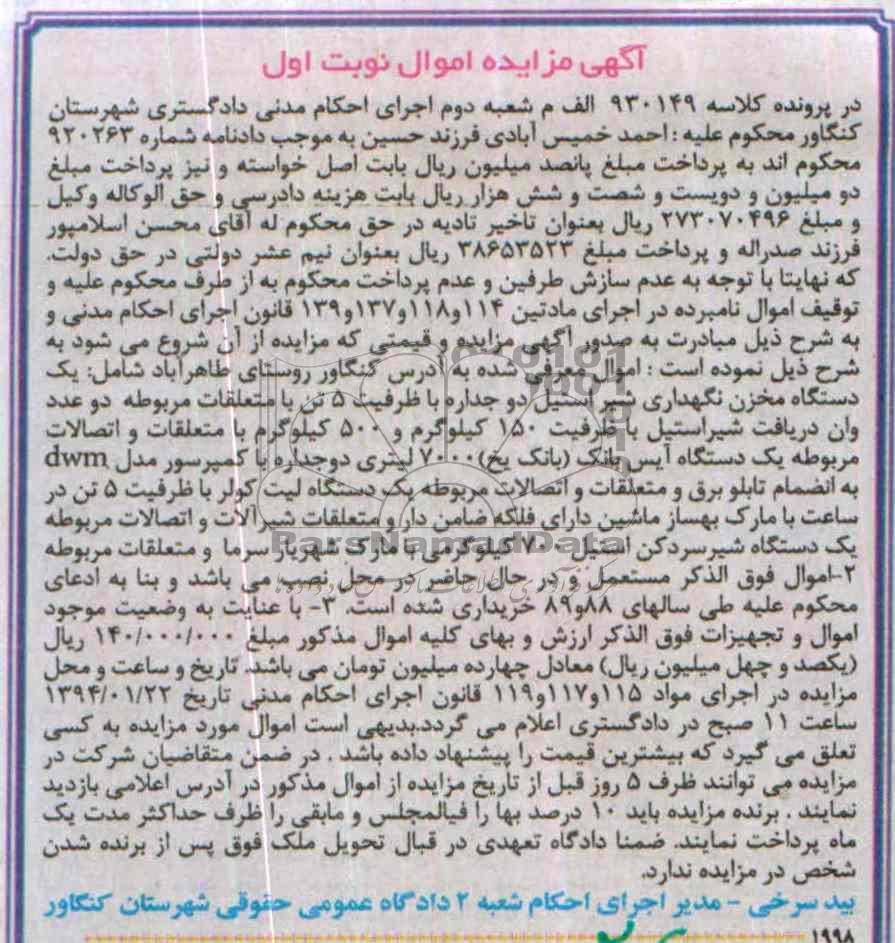 آگهی مزایده اموال نوبت اول
در پرونده کلاسه ۹۳۰۱۴۹ الف م شعبه دوم اجرای احکام مدنی دادگستری شهرستان
کنگاور محکوم علیه : احمد خمیس آبادی فرزند حسین به موجب دادنامه شماره ۹۲۰۲۶۳
محکوم اند به پرداخت مبلغ پانصد میلیون ریال بابت اصل خواسته و نیز پرداخت مبلغ
دو میلیون و دویست و شصت و شش هزار ریال بابت هزینه دادرسی و حق الوکاله وکیل
و مبلغ ۲۷۳۰۷۰۴۹۶ ریال بعنوان تاخیر تادیه در حق محکوم له آقای محسن اسلامپور
فرزند صدراله و پرداخت مبلغ ۳۸۶۵۳۵۲۳ ریال بعنوان نیم عشر دولتی در حق دولت.
که نهایتا با توجه به عدم سازش طرفین و عدم پرداخت محکوم به از طرف محکوم علیه و
توقیف اموال نامبرده در اجرای مادتین ۱۱۴و۱۱۸و۱۳۷و۱۳۹ قانون اجرای احکام مدنی و
به شرح ذیل مبادرت به صدور آگهی مزایده و قیمتی که مزایده از آن شروع می شود به
شرح ذیل نموده است : اموال معرفی شده به آدرس کنگاور روستای طاهرآباد شامل: یک
دستگاه مخزن نگهداری شیر استیل دو جداره با ظرفیت ۵ تن با متعلقات مربوطه دو عدد
وان دریافت شیراستیل با ظرفیت ۱۵۰ کیلوگرم و ۵۰۰ کیلوگرم با متعلقات و اتصالات
مربوطه یک دستگاه آیس بانک (بانک یخ)۷۰۰۰ لیتری دوجداره با کمپرسور مدل dwm
به انضمام تابلو برق و متعلقات و اتصالات مربوطه یک دستگاه لیت کولر با ظرفیت ۵ تن در
ساعت با مارک بهساز ماشین دارای فلکه ضامن دار و متعلقات شیرآلات و اتصالات مربوطه
یک دستگاه شیرسردکن استیل ۷۰۰کیلوگرمی با مارک شهریار سرما و متعلقات مربوطه
۲-اموال فوق الذکر مستعمل و در حال حاضر در محل نصب می باشد و بنا به ادعای
محکوم علیه طی سالهای ۸۸و۸۹ خریداری شده است. ۳- با عنایت به وضعیت موجود
اموال و تجهیزات فوق الذکر ارزش و بهای کلیه اموال مذکور مبلغ ۱۴۰/۰۰۰/۰۰۰ ریال
(یکصد و چهل میلیون ریال) معادل چهارده میلیون تومان می باشد. تاریخ و ساعت و محل
مزایده در اجرای مواد ۱۱۵و۱۱۷و۱۱۹ قانون اجرای احکام مدنی تاریخ ۱۳۹۴/۰۱/۲۲
ساعت ۱۱ صبح در دادگستری اعلام می گردد.بدیهی است اموال مورد مزایده به کسی
تعلق می گیرد که بیشترین قیمت را پیشنهاد داده باشد . در ضمن متقاضیان شرکت در
مزایده می توانند ظرف ۵ روز قبل از تاریخ مزایده از اموال مذکور در آدرس اعلامی بازدید
نمایند . برنده مزایده باید ۱۰ درصد بها را فیالمجلس و مابقی را ظرف حداکثر مدت یک
ماه پرداخت نمایند. ضمنا دادگاه تعهدی در قبال تحویل ملک فوق پس از برنده شدن
شخص در مزایده ندارد.
بید سرخی - مدیر اجرای احکام شعبه ۲ دادگاه عمومی حقوقی شهرستان کنگاور
۱۹۹۸
ParsNamadData